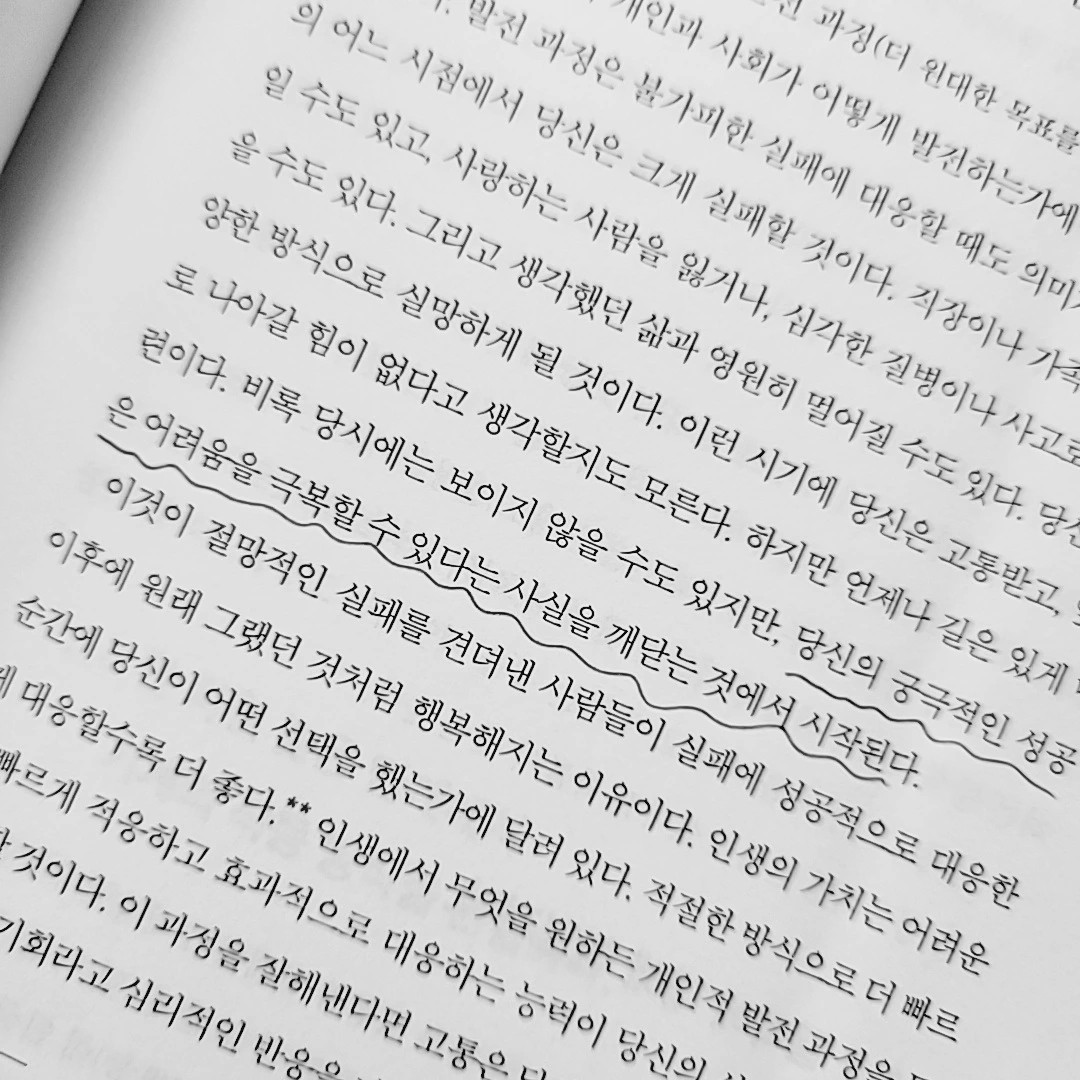 과정(더 원대한 목표를
개인과 사회가 어떻게 발전하는가에
발전 과정은 불가피한 실패에 대응할 때도 의미
의 어느 시점에서 당신은 크게 실패할 것이다. 직장이나 가족
일 수도 있고, 사랑하는 사람을 잃거나, 심각한 질병이나 사고로
을 수도 있다. 그리고 생각했던 삶과 영원히 멀어질 수도 있다. 당신
양한 방식으로 실망하게 될 것이다. 이런 시기에 당신은 고통받고,
로 나아갈 힘이 없다고 생각할지도 모른다. 하지만 언제나 길은 있게
련이다. 비록 당시에는 보이지 않을 수도 있지만, 당신의 궁극적인 성공
은 어려움을 극복할 수 있다는 사실을 깨닫는 것에서 시작된다.
이것이 절망적인 실패를 견뎌낸 사람들이 실패에 성공적으로 대응한
이후에 원래 그랬던 것처럼 행복해지는 이유이다. 인생의 가치는 어려운
순간에 당신이 어떤 선택을 했는가에 달려 있다. 적절한 방식으로 더 빠르
게 대응할수록 더 좋다.** 인생에서 무엇을 원하든 개인적 발전 과정을
빠르게 적응하고 효과적으로 대응하는 능력이 당신의
것이다. 이 과정을 잘해낸다면 고통은
기회라고 심리적인 반응을